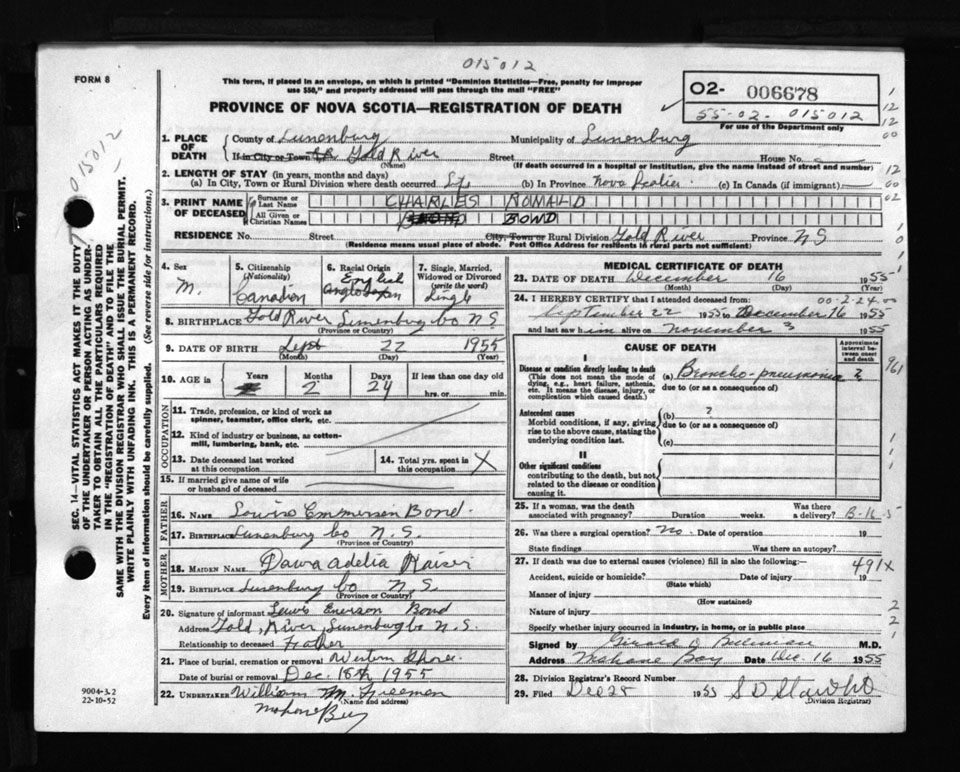 015012
FORM 8
This form, if placed in an envelope, on which is printed "Dominion Statistics—Free, penalty for improper
use $50," and properly addressed will pass through the mail "FREE"
PROVINCE OF NOVA SCOTIA—REGISTRATION OF DEATH
O2- 006678
55-02-015012
For use of the Department only
015012
SEC. 14—VITAL STATISTICS ACT MAKES IT THE DUTY
OF THE UNDERTAKER OR PERSON ACTING AS UNDER-
TAKER TO OBTAIN ALL THE PARTICULARS REQUIRED
IN THE "REGISTRATION OF DEATH" AND TO FILE THE
SAME WITH THE DIVISION REGISTRAR WHO SHALL ISSUE THE BURIAL PERMIT.
WRITE PLAINLY WITH UNFADING INK. THIS IS A PERMANENT RECORD.
Every item of information should be carefully supplied. (See reverse side for instructions.)
1. PLACE OF DEATH
County of Lunenburg Municipality of Lunenburg
If in City or Town Gold River Street House No.
(Name) (If death occurred in a hospital or institution, give the name instead of street and number)
2. LENGTH OF STAY (in years, months and days)
(a) In City, Town or Rural Division where death occurred (b) In Province Nova Scotia (c) In Canada (if immigrant)
3. PRINT NAME OF DECEASED
Surname or Last Name CHARLES RONALD
All Given or Christian Names BOND
RESIDENCE No. Street City, Town or Rural Division Gold River Province N S
(Residence means usual place of abode. Post Office Address for residents in rural parts not sufficient)
4. Sex
M.
5. Citizenship (Nationality)
Canadian
6. Racial Origin
English
Anglosaxon
7. Single, Married, Widowed or Divorced (write the word)
Single
8. BIRTHPLACE Gold River Lunenburg Co N.S.
(Province or Country)
9. DATE OF BIRTH Sept 22 1955
(Month) (Day) (Year)
10. AGE in Years Months Days If less than one day old
2 24 hrs. or min.
OCCUPATION
11. Trade, profession, or kind of work as
spinner, teamster, office clerk, etc.
12. Kind of industry or business, as cotton-
mill, lumbering, bank, etc.
13. Date deceased last worked
at this occupation
14. Total yrs. spent in
this occupation X
15. If married give name of wife
or husband of deceased
FATHER
16. NAME Lewis Emmerson Bond
17. BIRTHPLACE Lunenburg Co N.S.
(Province or Country)
MOTHER
18. MAIDEN NAME adelia Kaiser
19. BIRTHPLACE Lunenburg Co N.S.
(Province or Country)
20. Signature of informant Lewis Emerson Bond
Address Gold River Lunenburg Co N.S.
Relationship to deceased Father
21. Place of burial, cremation or removal Western Shore
Date of burial or removal Dec. 18th 1955
22. UNDERTAKER William M. Freeman
(Name and address)
Mahone Bay
9004-3.2
22-10-52
MEDICAL CERTIFICATE OF DEATH
23. DATE OF DEATH December 16 1955
(Month) (Day) (Year)
24. I HEREBY CERTIFY that I attended deceased from: 00-2-24
September 22 1955 to December 16 1955
and last saw him alive on November 3 1955
CAUSE OF DEATH
Approximate interval between onset and death
I
Disease or condition directly leading to death
(This does not mean the mode of
dying, e.g., heart failure, asthenia,
etc. It means the disease, injury, or
complication which caused death.)
(a) Broncho-pneumonia ?
due to (or as a consequence of)
Antecedent causes
Morbid conditions, if any, giving
rise to the above cause, stating the
underlying condition last.
(b) ?
due to (or as a consequence of)
(c)
II
Other significant conditions
contributing to the death, but not
related to the disease or condition
causing it.
25. If a woman, was the death
associated with pregnancy? Duration weeks. Was there
a delivery? B-16-5
26. Was there a surgical operation? No. Date of operation 19
State findings Was there an autopsy?
27. If death was due to external causes (violence) fill in also the following:— 491X
Accident, suicide or homicide? Date of injury 19
(State which)
Manner of injury
(How sustained)
Nature of injury
Specify whether injury occurred in industry, in home, or in public place
Signed by M.D.
Address Mahone Bay Date Dec. 16 1955
28. Division Registrar's Record Number
29. Filed Dec 28 1955
(Division Registrar)